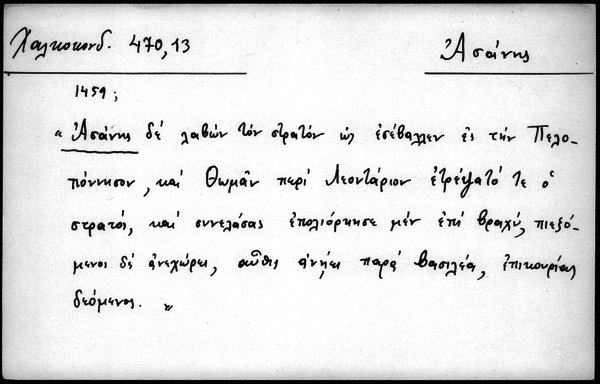 Χαλκοκονδ. 470,13
Ἀσάνης
1459;
“ Ἀσάνης δέ λαβών τόν στρατόν ὡς ἐσέβαλλεν ἐς τήν Πελο-
πόννησον, καί Θωμᾶν περί Λεοντάριον ἐτρέψατό τε ὁ
στρατός, καί συνελάσας ἐπολιόρκησε μέν ἐπί βραχύ, πιεζό-
μενος δέ ἀνεχώρει, αὖθις ἀνῄει παρά βασιλέα, ἐπικουρίας
δεόμενος. „